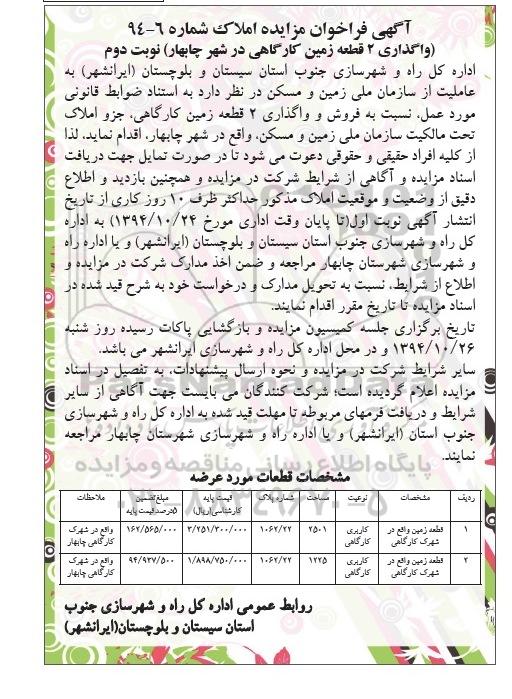 آگهی فراخوان مزایده املاک شماره ۶-۹۴
(واگذاری ۲ قطعه زمین کارگاهی در شهر چابهار) نوبت دوم
اداره کل راه و شهرسازی جنوب استان سیستان و بلوچستان (ایرانشهر) به
عاملیت از سازمان ملی زمین و مسکن در نظر دارد به استناد ضوابط قانونی
مورد عمل، نسبت به فروش و واگذاری ۲ قطعه زمین کارگاهی، جزو املاک
تحت مالکیت سازمان ملی زمین و مسکن، واقع در شهر چابهار، اقدام نماید، لذا
از کلیه افراد حقیقی و حقوقی دعوت می شود تا در صورت تمایل جهت دریافت
اسناد مزایده و آگاهی از شرایط شرکت در مزایده و همچنین بازدید و اطلاع
دقیق از وضعیت و موقعیت املاک مذکور حداکثر ظرف ۱۰ روز کاری از تاریخ
انتشار آگهی نوبت اول(تا پایان وقت اداری مورخ ۱۳۹۴/۱۰/۲۴) به اداره
کل راه و شهرسازی جنوب استان سیستان و بلوچستان (ایرانشهر) و یا اداره راه
و شهرسازی شهرستان چابهار مراجعه و ضمن اخذ مدارک شرکت در مزایده و
اطلاع از شرایط، نسبت به تحویل مدارک و درخواست خود به شرح قید شده در
اسناد مزایده تا تاریخ مقرر اقدام نمایند.
تاریخ برگزاری جلسه کمیسیون مزایده و بازگشایی پاکات رسیده روز شنبه
۱۳۹۴/۱۰/۲۶ و در محل اداره کل راه و شهرسازی ایرانشهر می باشد.
سایر شرایط شرکت در مزایده و نحوه ارسال پیشنهادات، به تفصیل در اسناد
مزایده اعلام گردیده است؛ شرکت کنندگان می بایست جهت آگاهی از سایر
شرایط و دریافت فرمهای مربوطه تا مهلت قید شده به اداره کل راه و شهرسازی
جنوب استان (ایرانشهر) و یا اداره راه و شهرسازی شهرستان چابهار مراجعه
نمایند.
مشخصات قطعات مورد عرضه
ردیف مشخصات نوعیت مساحت شماره پلاک قیمت پایه کارشناسی(ریال) مبلغ تضمین ۵درصد قیمت پایه ملاحظات
۱ قطعه زمین واقع در شهرک کارگاهی کاربری کارگاهی ۲۵۰۱ ۱۰۶۲/۲۲ ۳/۲۵۱/۳۰۰/۰۰۰ ۱۶۲/۵۶۵/۰۰۰ واقع در شهرک کارگاهی چابهار
۲ قطعه زمین واقع در شهرک کارگاهی کاربری کارگاهی ۱۲۲۵ ۱۰۶۲/۲۲ ۱/۸۹۸/۷۵۰/۰۰۰ ۹۴/۹۳۷/۵۰۰ واقع در شهرک کارگاهی چابهار
روابط عمومی اداره کل راه و شهرسازی جنوب
استان سیستان و بلوچستان(ایرانشهر)
ParsNamadData
پایگاه اطلاع رسانی مناقصه و مزایده